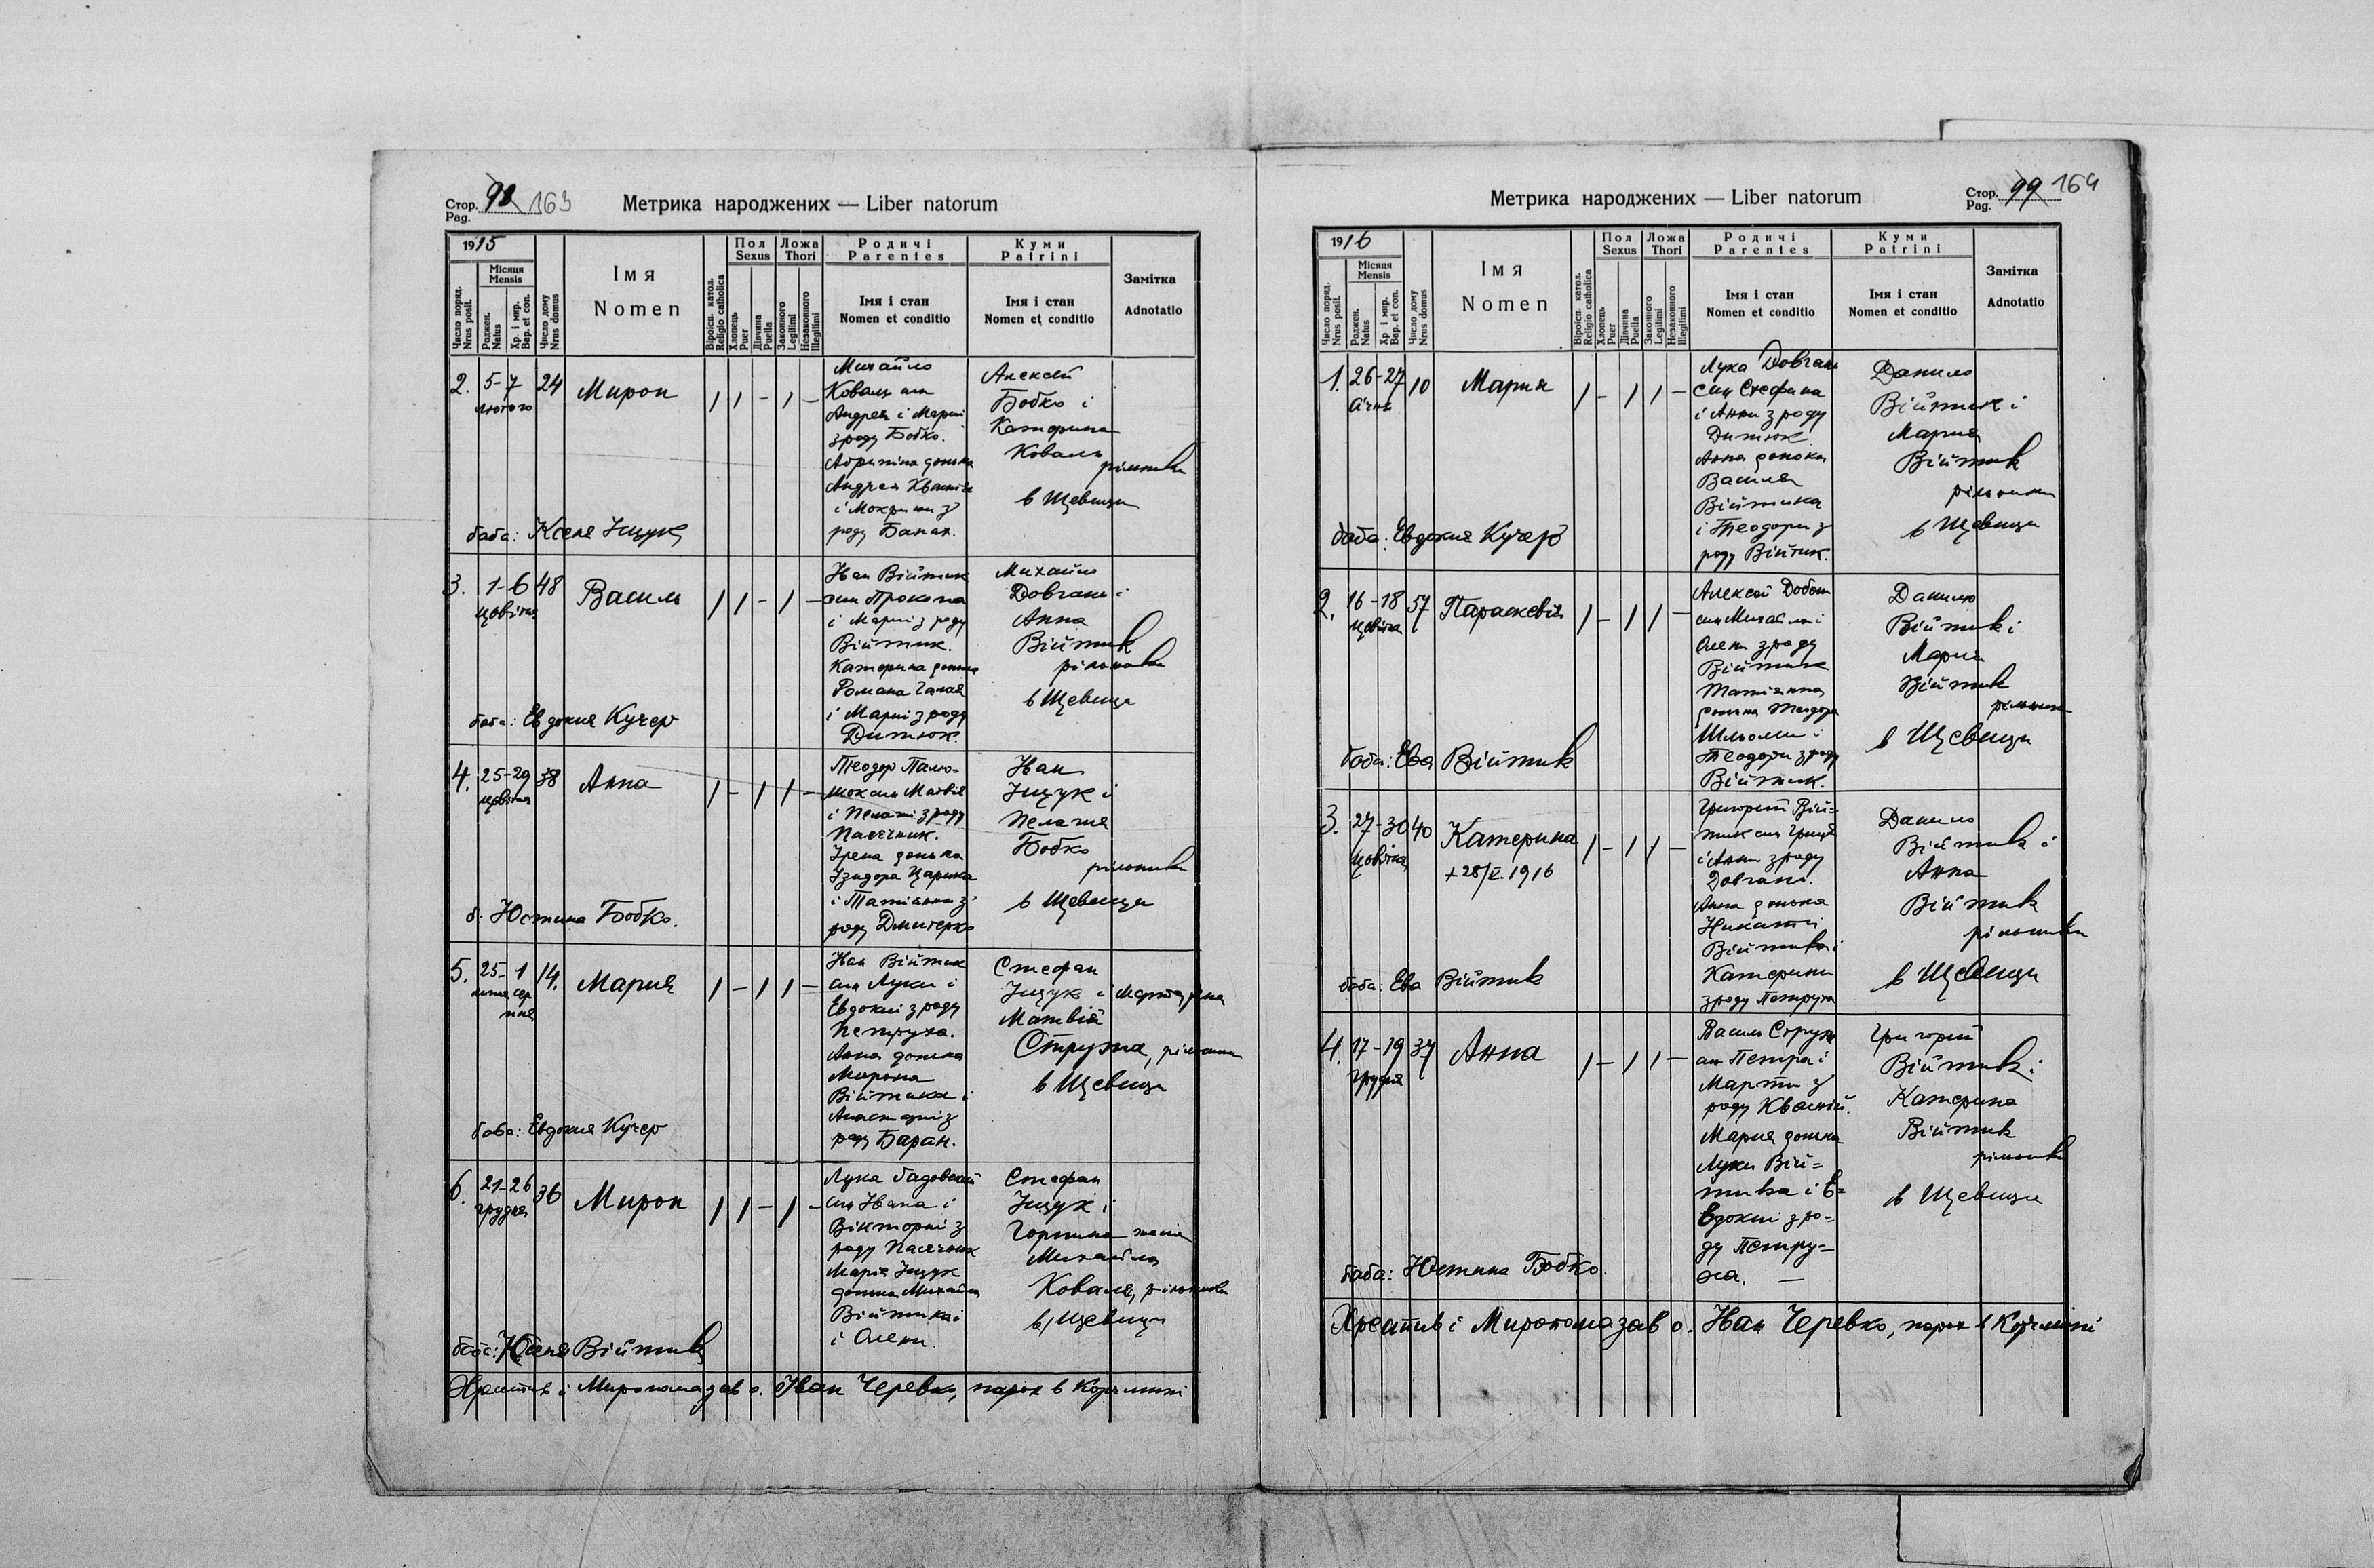 Стор. Pag. 98 163
Метрика народжених — Liber natorum
1915
Число поряд. Nrus posit.
Місяця Mensis
Роджен. Natus
Хр. і мир. Bap. et con.
Число дому Nrus domus
Імя Nomen
Віроісп. катол. Religio catholica
Пол Sexus
Хлопець Puer
Дівчина Puella
Ложа Thori
Законного Legitimi
Незаконного Illegitimi
Родичі Parentes
Імя і стан Nomen et conditio
Куми Patrini
Імя і стан Nomen et conditio
Замітка Adnotatio
2. 5-7 лютого 24 Мирон 1 1 - 1 -
Михайло
Коваль син
Андрея і Марії
з роду Бобко.
донька
Андрея
і Мокрини з
роду Банах.
Алексей
Бобко і
Катерина
Коваль
рільники
в Щевици
баба: Ксеня Іщук
3. 1-6 цвітня 48 Василь 1 1 - 1 -
Іван Війтик
син Прокопа
і Марії з роду
Війтик.
Катерина донька
Романа
і Марії з роду
Дитюк.
Михайло
Довгань і
Анна
Війтик
рільники
в Щевици
баба: Евдокия Кучер
4. 25-29 цвітня 38 Анна 1 - 1 1 -
Теодор Палю-
шок син Матвія
і Пелагії з роду
Пасічник.
Ірена донька
Ізидора Царика
і Татіянни з
роду Дмитерко
Іван
Іщук і
Пелагия
Бобко
рільники
в Щевици
б. Юстина Бобко.
5. 25-1 липня серпня 14. Мария 1 - 1 1 -
Іван Війтик
син Луки і
Евдокиі з роду
Петруха.
Анна донька
Мирона
Війтика і
Анастазиі з
роду Баран.
Стефан
Іщук і Марта жена
Матвія
Струка, рільники
в Щевици
баба: Евдокия Кучер
6. 21-26 грудня 36 Мирон 1 1 - 1 -
Лука Садовский
син Івана і
Вікториі з
роду Пасічник
Марія Іщук
донька Михайла
Війтика і
і Олени.
Стефан
Іщук і
Горпина жена
Михайла
Коваля, рільники
в Щевици
баба: Ксеня Війтик
Хрестив і Миропомазав о. Іван Черевко, парох в Корчмині
Метрика народжених — Liber natorum
Стор. Pag. 99 164
1916
Число поряд. Nrus posit.
Місяця Mensis
Роджен. Natus
Хр. і мир. Bap. et con.
Число дому Nrus domus
Імя Nomen
Віроісп. катол. Religio catholica
Пол Sexus
Хлопець Puer
Дівчина Puella
Ложа Thori
Законного Legitimi
Незаконного Illegitimi
Родичі Parentes
Імя і стан Nomen et conditio
Куми Patrini
Імя і стан Nomen et conditio
Замітка Adnotatio
1. 26-27 січня 10 Мария 1 - 1 1 -
Лука Довгань
син Стефана
і Анни з роду
Дитюк.
Анна донька
Василя
Війтика
і Теодори з
роду Війтик.
Данило
Війтик і
Мария
Війтик
рільники
в Щевици
баба: Евдокия Кучер
2. 16-18 цвітня 57 Параскевія 1 - 1 1 -
Алексей
син Михайла і
Олени з роду
Війтик
Татіянна
донька Теодора
і
Теодори з роду
Війтик.
Данило
Війтик і
Мария
Війтик
рільники
в Щевици
баба: Ева Війтик
3. 27-30 цвітня 40 Катерина 1 - 1 1 -
+ 28/ 1916
Григорий Вій=
тик син Гриця
і Анни з роду
Довгань.
Анна донька
Никити
Війтика і
Катерини
з роду Петруха
Данило
Війтик і
Анна
Війтик
рільники
в Щевици
баба: Ева Війтик
4. 17-19 грудня 37 Анна 1 - 1 1 -
Василь Струк
син Петра і
Марти з
роду Квасній.
Мария донька
Луки Вій=
тика і Е=
вдокиі з ро=
ду Петру=
ха. —
Григорий
Війтик і
Катерина
Війтик
рільники
в Щевици
баба: Юстина Бобко.
Хрестив і Миропомазав о. Іван Черевко, парох в Корчмині